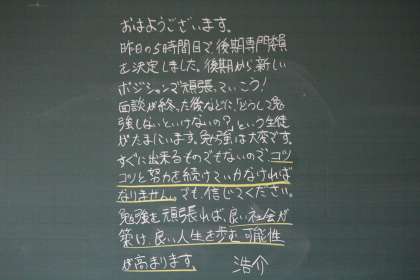 おはようございます。
昨日の5時間目で、後期専門委員
を決定しました。後期から新しい
ポジションで頑張っていこう！
面談が終った後などに、「どうして勉
強しないといけないの？」という生徒
がたまにいます。勉強は大変です。
すぐに出来るものでもないので コツ
コツと努力を続けていかなければ
なりません。でも、信じてください。
勉強を頑張れば、良い社会が
築け、良い人生を歩む可能性
が高まります。 浩介